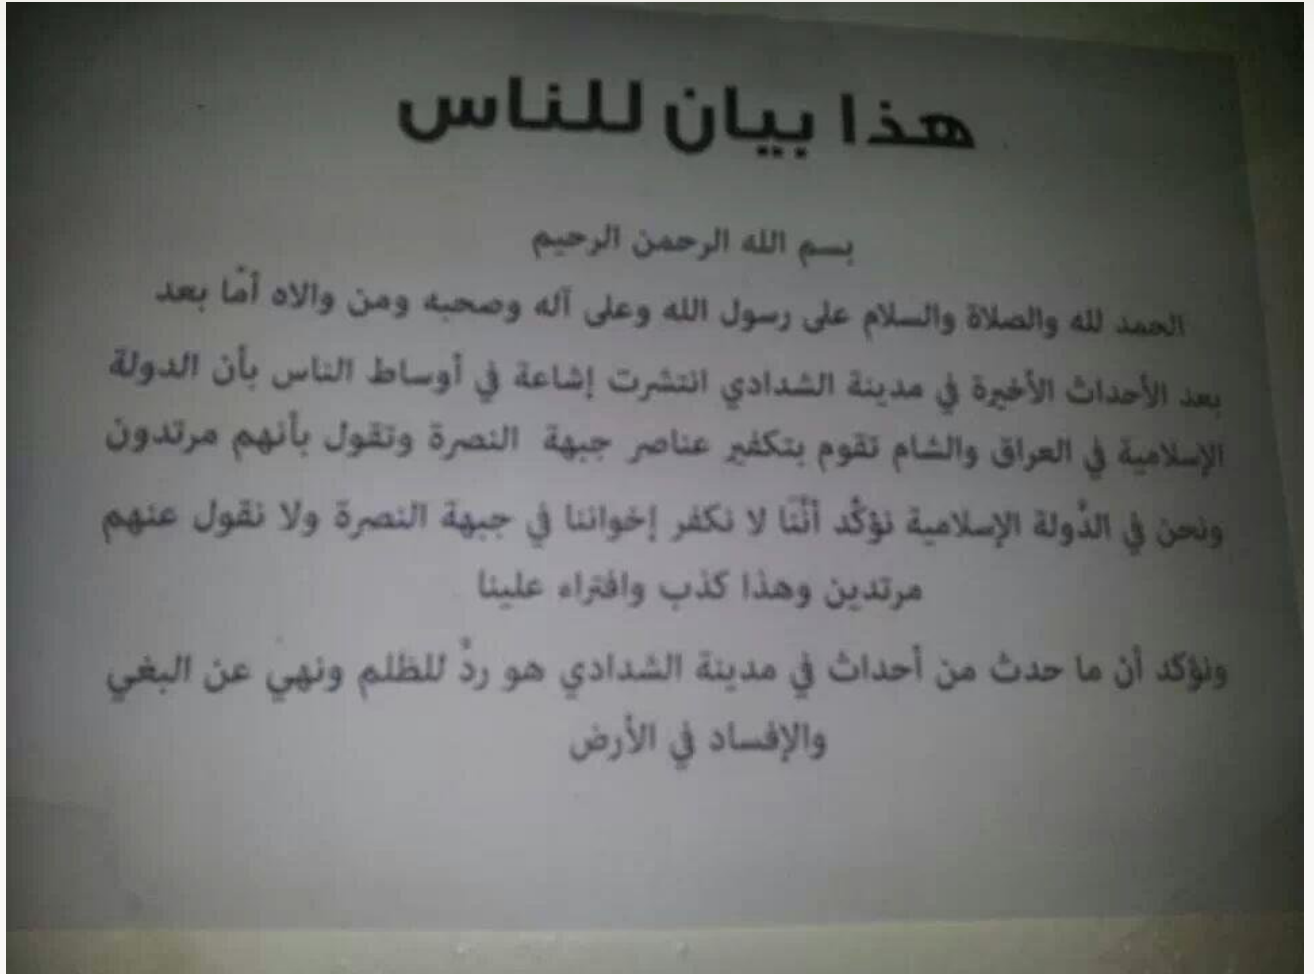 هذا بيان للناس
بسم الله الرحمن الرحيم
الحمد لله والصلاة والسلام على رسول الله وعلى آله وصحبه ومن والاه أمّا بعد
بعد الأحداث الأخيرة في مدينة الشدادي انتشرت إشاعة في أوساط الناس بأن الدولة
الإسلامية في العراق والشام تقوم بتكفير عناصر جبهة النصرة وتقول بأنهم مرتدون
ونحن في الدّولة الإسلامية نؤكّد أنّنا لا نكفر إخواننا في جبهة النصرة ولا نقول عنهم
مرتدين وهذا كذب وافتراء علينا
ونؤكد أن ما حدث من أحداث في مدينة الشدادي هو ردّ للظلم ونهي عن البغي
والإفساد في الأرض